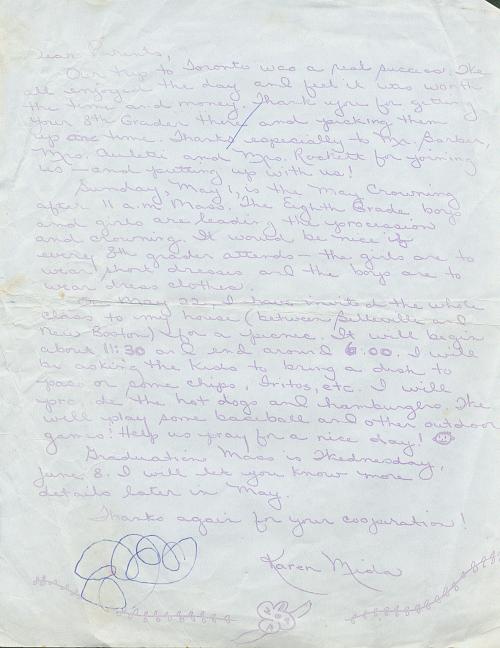 Dear Parents,
Our trip to Toronto was a real success. We
all enjoyed the day and feel it was worth
the time and money. Thank you for getting
your 8th Grader there and picking them
up on time. Thanks especially to Mr. Barber,
Mrs. Auletti and Mrs. Rockett for joining
us — and putting up with us!
Sunday, May 1, is the May Crowning
after 11 a.m. Mass. The Eighth Grade boys
and girls are leading the procession
and crowning. It would be nice if
every 8th grader attends — the girls are to
wear short dresses and the boys are to
wear dress clothes.
On May 22, I have invited the whole
class to my house (between Belleville and
New Boston) for a picnic. It will begin
about 11:30 and end around 6:00. I will
be asking the kids to bring a dish to
pass or some chips, Fritos, etc. I will
provide the hot dogs and hamburgers. We
will play some baseball and other outdoor
games! Help us pray for a nice day!
Graduation Mass is Wednesday,
June 8. I will let you know more
details later in May.
Thanks again for your cooperation!
Karen Mida